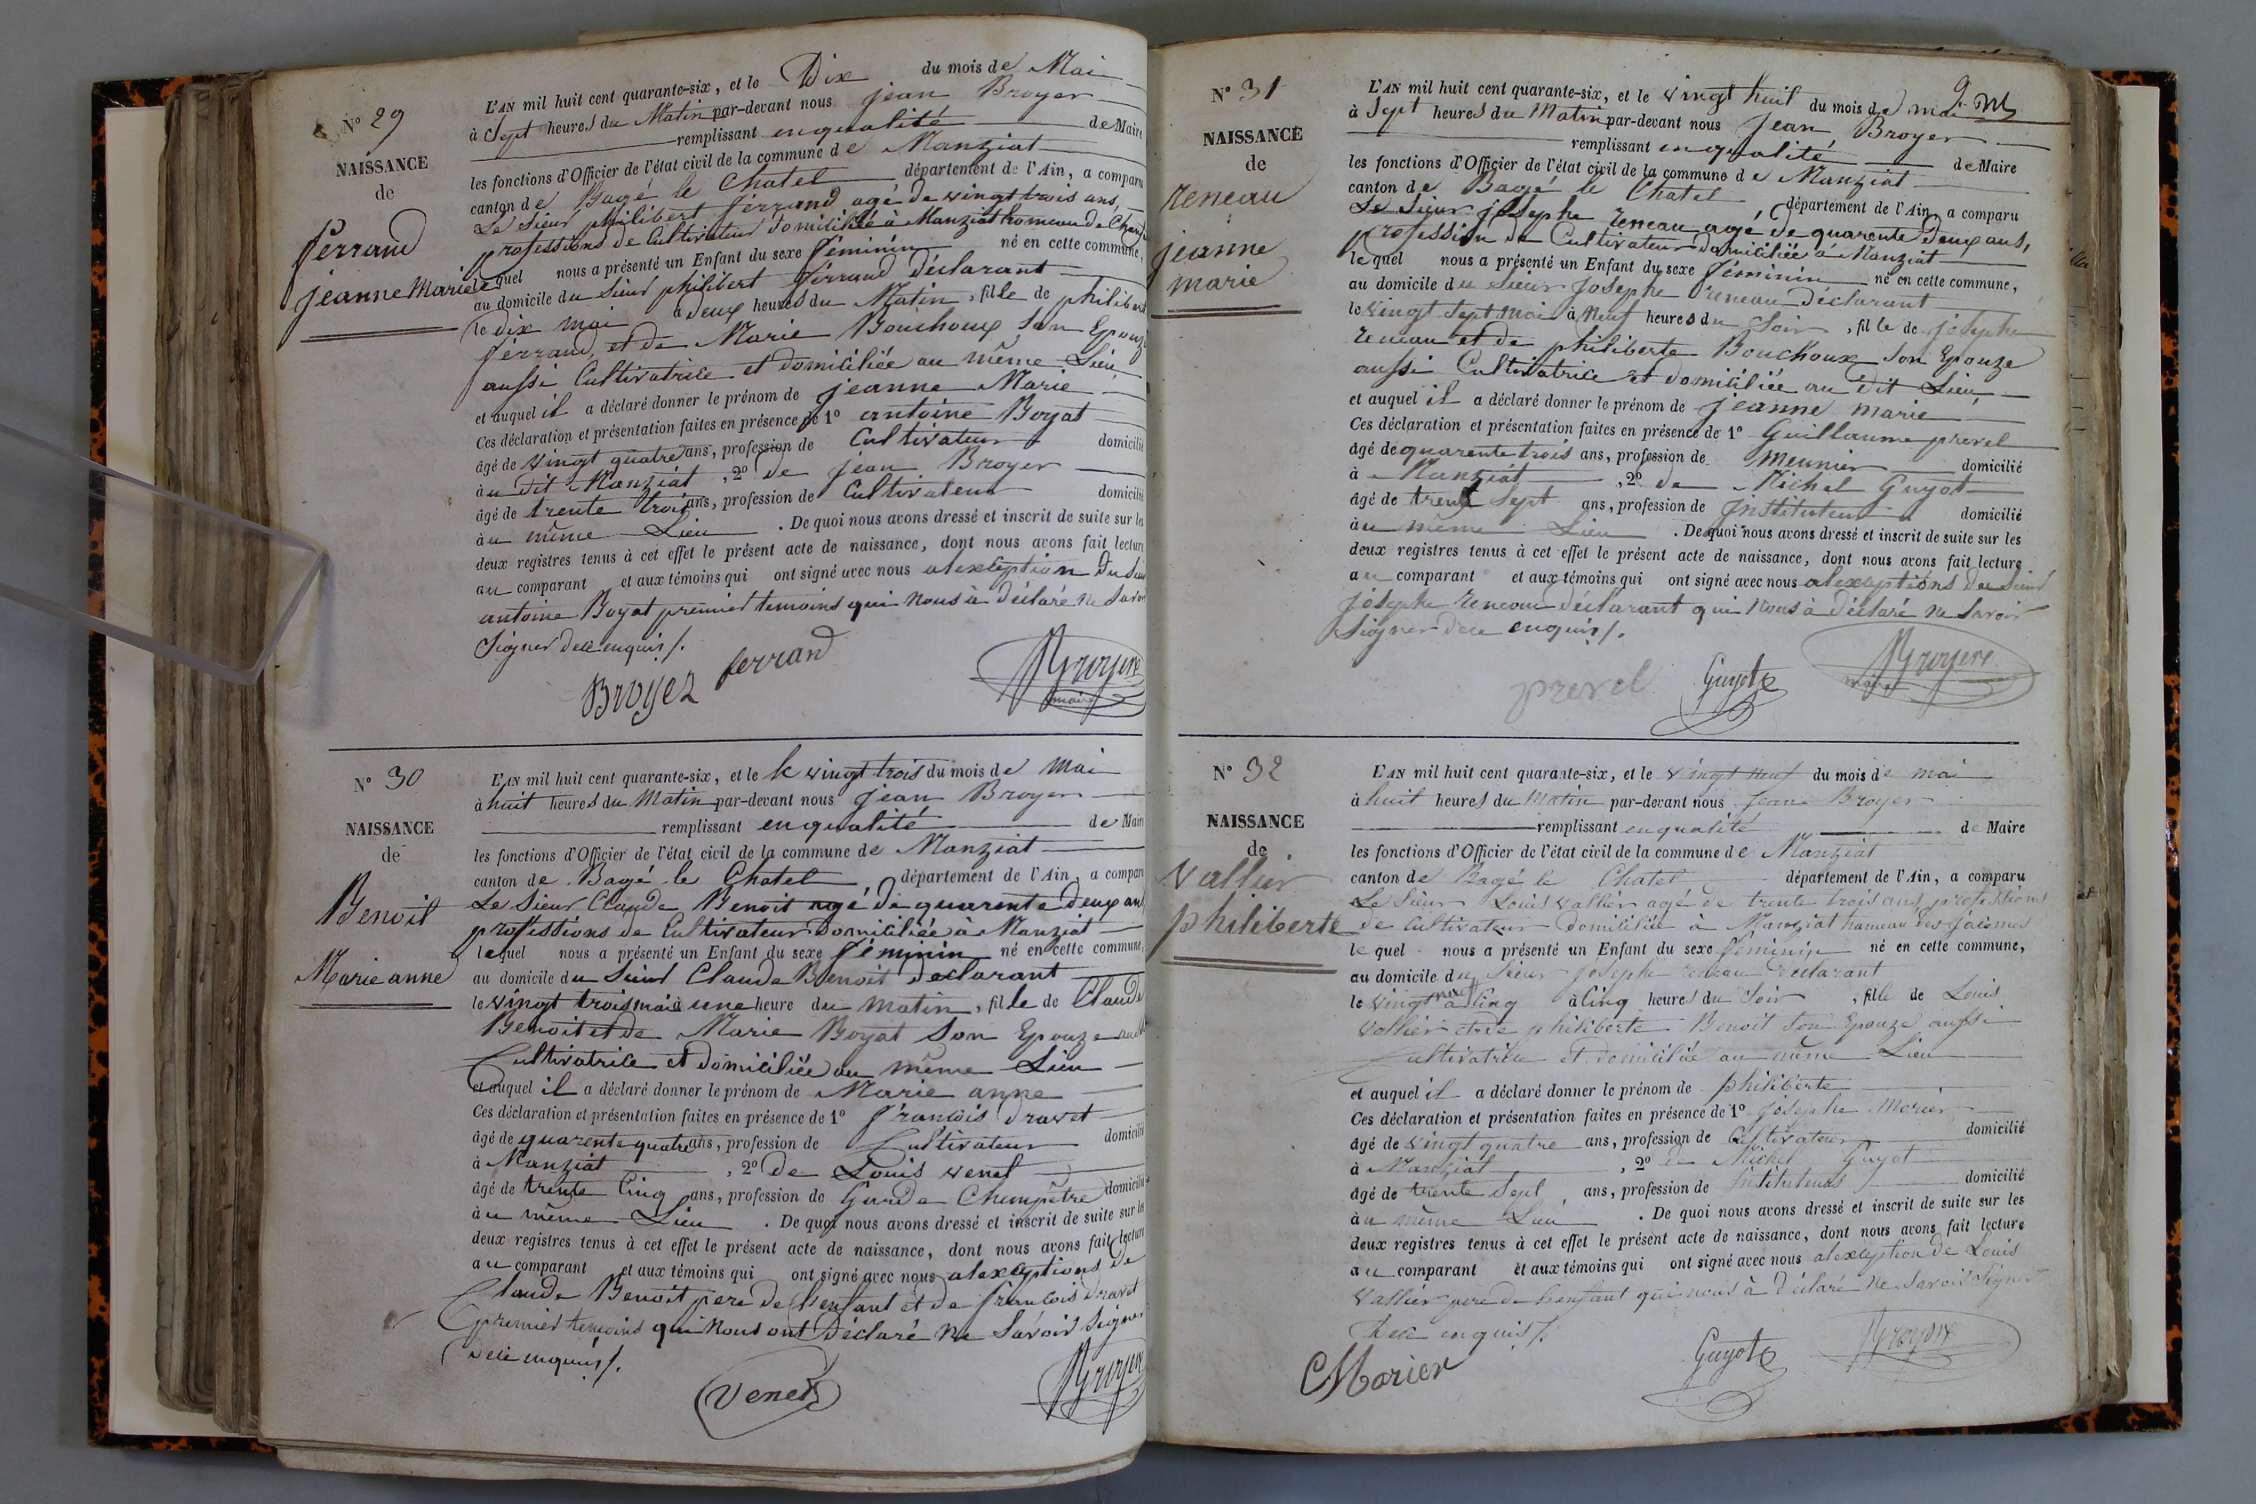 N° 29
NAISSANCE
de
ferrand
jeanne Marie
L'AN mil huit cent quarante-six, et le Dix du mois de Mai
à Sept heures du Matin par-devant nous jean Broyer
remplissant en qualité de Maire
les fonctions d'Officier de l'état civil de la commune de Manziat
canton de Bagé le Chatel département de l'Ain, a comparu
Le Sieur philibert ferrand agé de vingt trois ans,
professions de Cultivateur domiciliée à Manziat hameau de
lequel nous a présenté un Enfant du sexe féminin né en cette commune,
au domicile du Sieur philibert ferrand déclarant
le dix mai à deux heures du Matin, fille de philibert
ferrand, et de Marie Bouchoux Son Epouze
aussi Cultivatrice et domiciliée au même Lieu
et auquel il a déclaré donner le prénom de jeanne Marie
Ces déclaration et présentation faites en présence de 1° antoine Boyat
âgé de vingt quatre ans, profession de Cultivateur domicilié
à u dit Manziat, 2° de jean Broyer
âgé de trente trois ans, profession de Cultivateur domicilié
à u même Lieu. De quoi nous avons dressé et inscrit de suite sur les
deux registres tenus à cet effet le présent acte de naissance, dont nous avons fait lecture
au comparant et aux témoins qui ont signé avec nous alexception du Sieur
antoine Boyat premier temoins qui nous à déclaré ne Savoir
Signer dece enquis /.
Broyer ferrand Broyer
maire
N° 30
NAISSANCE
de
Benoit
Marie anne
L'AN mil huit cent quarante-six, et le le vingt trois du mois de Mai
à huit heures du Matin par-devant nous jean Broyer
remplissant en qualité de Maire
les fonctions d'Officier de l'état civil de la commune de Manziat
canton de Bagé le Chatel département de l'Ain, a comparu
Le Sieur Claude Benoit agé de quarente deux ans
professions de Cultivateur domiciliée à Manziat
lequel nous a présenté un Enfant du sexe féminin né en cette commune,
au domicile du Sieur Claude Benoit déclarant
le vingt trois mai à une heure du matin, fille de Claude
Benoit et de Marie Boyat Son Epouze aussi
Cultivatrice et domiciliée au même Lieu
et auquel il a déclaré donner le prénom de Marie anne
Ces déclaration et présentation faites en présence de 1° francois dravet
âgé de quarente quatre ans, profession de Cultivateur domicilié
à Manziat, 2° de Louis venet
âgé de trente Cinq ans, profession de Garde Champêtre domicilié
à u même Lieu. De quoi nous avons dressé et inscrit de suite sur les
deux registres tenus à cet effet le présent acte de naissance, dont nous avons fait lecture
au comparant et aux témoins qui ont signé avec nous alexceptions de
Claude Benoit pere de l'enfant et de francois dravet
premier temoins qui nous ont déclaré ne Savoir Signer
dece enquis /.
Venet Broyer
9
N° 31
NAISSANCE
de
reneau
jeanne
marie
L'AN mil huit cent quarante-six, et le vingt huit du mois de mai
à Sept heures du Matin par-devant nous jean Broyer
remplissant en qualité de Maire
les fonctions d'Officier de l'état civil de la commune de Manziat
canton de Bagé le Chatel département de l'Ain, a comparu
Le Sieur josephe reneau agé de quarente deux ans,
profession de Cultivateur domiciliée à Manziat
lequel nous a présenté un Enfant du sexe féminin né en cette commune,
au domicile du Sieur josephe reneau déclarant
le vingt Sept mai à neuf heures du Soir, fille de josephe
reneau et de philiberte Bouchoux Son Epouze
aussi Cultivatrice et domiciliée au dit Lieu,
et auquel il a déclaré donner le prénom de jeanne marie
Ces déclaration et présentation faites en présence de 1° Guillaume prevel
âgé de quarente trois ans, profession de meunier domicilié
à Manziat, 2° de Michel Guyot
âgé de trente Sept ans, profession de Instituteur domicilié
à u même Lieu. De quoi nous avons dressé et inscrit de suite sur les
deux registres tenus à cet effet le présent acte de naissance, dont nous avons fait lecture
au comparant et aux témoins qui ont signé avec nous alexceptions du Sieur
josephe reneau déclarant qui nous à déclaré ne Savoir
Signer dece enquis /.
prevel Guyot Broyer
maire
N° 32
NAISSANCE
de
Vallier
philiberte
L'AN mil huit cent quarante-six, et le vingt neuf du mois de mai
à huit heures du Matin par-devant nous jean Broyer
remplissant en qualité de Maire
les fonctions d'Officier de l'état civil de la commune de Manziat
canton de Bagé le Chatel département de l'Ain, a comparu
Le Sieur Louis Vallier agé de trente trois ans professions
de Cultivateur domiciliée à Manziat hameau des
lequel nous a présenté un Enfant du sexe féminin né en cette commune,
au domicile du Sieur josephe reneau déclarant
le vingt à Cinq heures du Soir, fille de Louis
Vallier et de philiberte Benoit Son Epouze aussi
Cultivatrice et domiciliée au même Lieu
et auquel il a déclaré donner le prénom de philiberte
Ces déclaration et présentation faites en présence de 1° josephe Morier
âgé de vingt quatre ans, profession de Cultivateur domicilié
à Manziat, 2° de Michel Guyot
âgé de trente Sept ans, profession de Instituteur domicilié
à u même Lieu. De quoi nous avons dressé et inscrit de suite sur les
deux registres tenus à cet effet le présent acte de naissance, dont nous avons fait lecture
au comparant et aux témoins qui ont signé avec nous alexception de Louis
Vallier pere de l'enfant qui nous à déclaré ne Savoir Signer
dece enquis /.
Morier Guyot Broyer